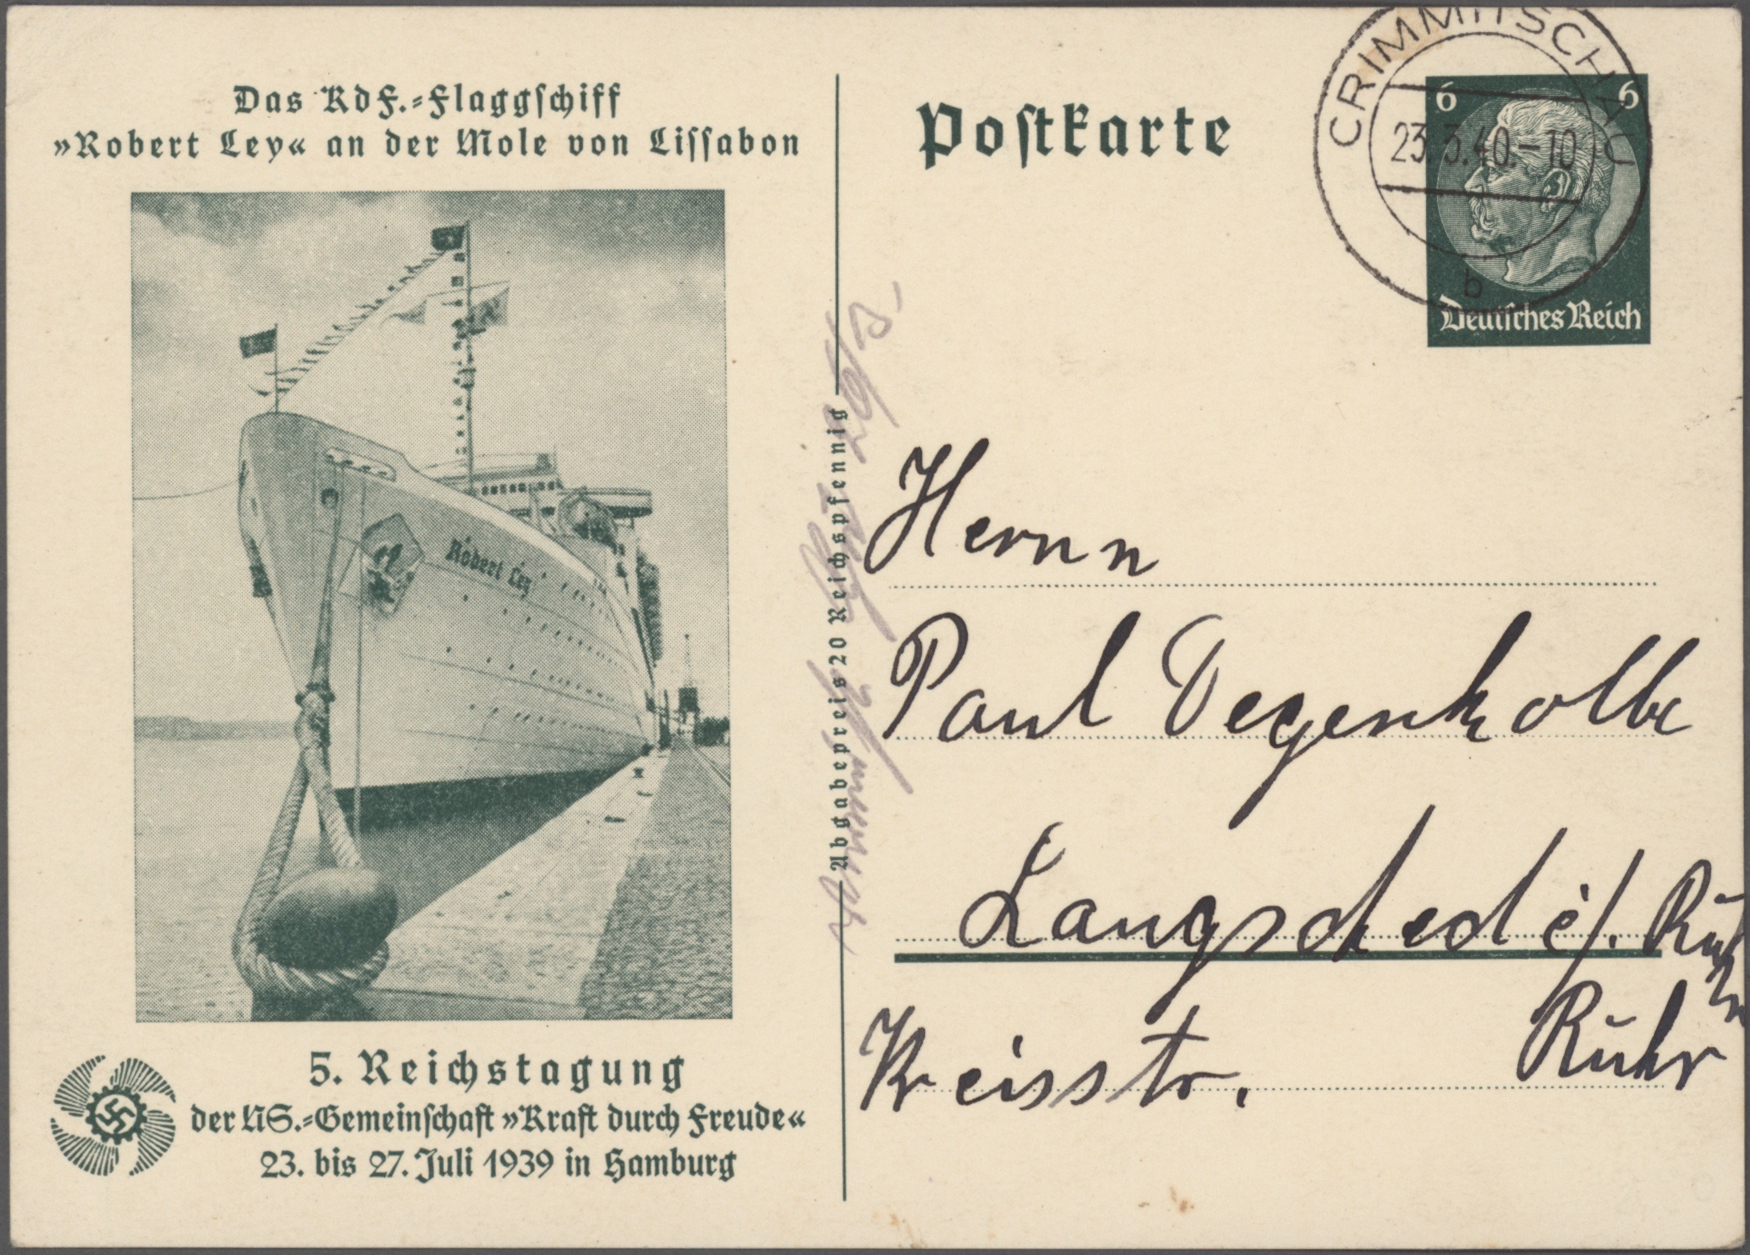 Das KdF.-Flaggschiff
»Robert Ley« an der Mole von Lissabon
Robert Ley
5. Reichstagung
der NS.-Gemeinschaft »Kraft durch Freude«
23. bis 27. Juli 1939 in Hamburg
Abgabepreis 20 Reichspfennig
Postkarte
CRIMMITSCHAU
23.3.40.-10
b
6 6
Deutsches Reich
Herrn
Paul Degenkolbe
Langsched i/. Ruhr
Ruhr